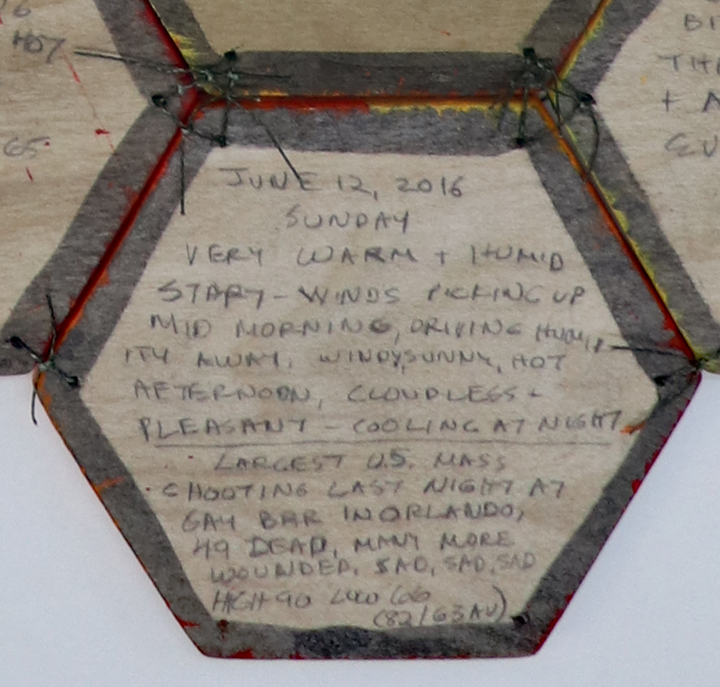 HOT
65
BI
TH
+ A
JUNE 12, 2016
SUNDAY
VERY WARM + HUMID
START - WINDS PICKING UP
MID MORNING, DRIVING HUMID
ITY AWAY. WINDY, SUNNY, HOT
AFTERNOON, CLOUDLESS +
PLEASANT - COOLING AT NIGHT
LARGEST U.S. MASS
SHOOTING LAST NIGHT AT
GAY BAR IN ORLANDO,
49 DEAD, MANY MORE
WOUNDED, SAD, SAD, SAD
HIGH 90 LOW 66
(82/63 AV)